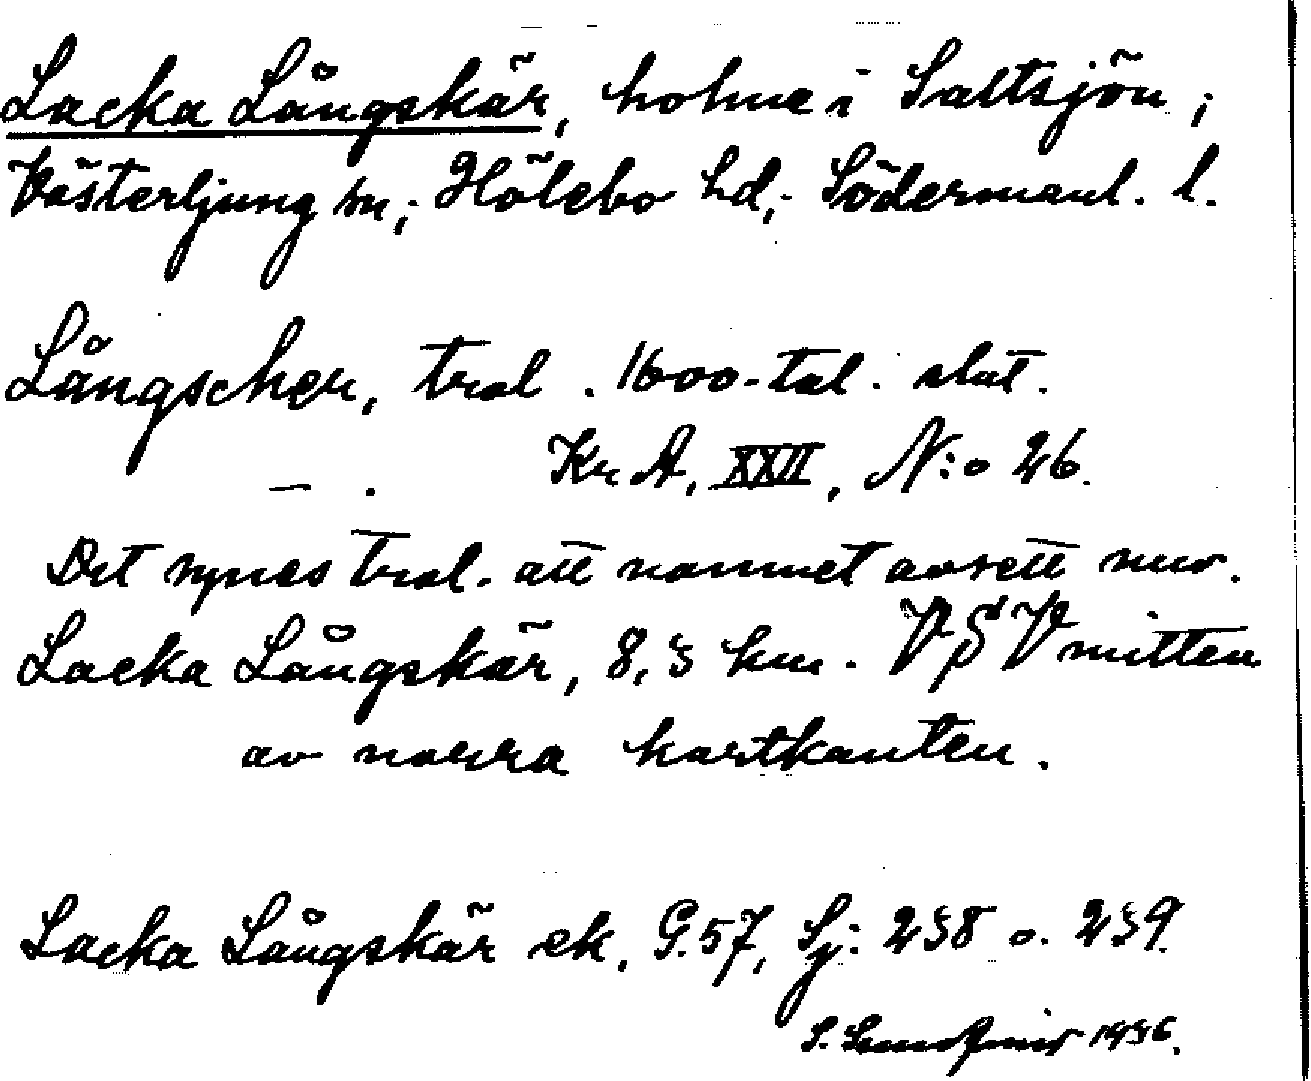 Lacka Långskär, holme i Saltsjön;
Västerljung sn; Hölebo hd; Södermanl. l.
Långscher, trol. 1600-tal. slut.
— . Kr A, XXII, N:o 26.
Det synes trol. att namnet avsett nuv.
Lacka Långskär, 8,3 km. VSV mitten
av norra kartkanten.
Lacka Långskär ek. G.57, Sj: 238 o. 239.
S. 1936.